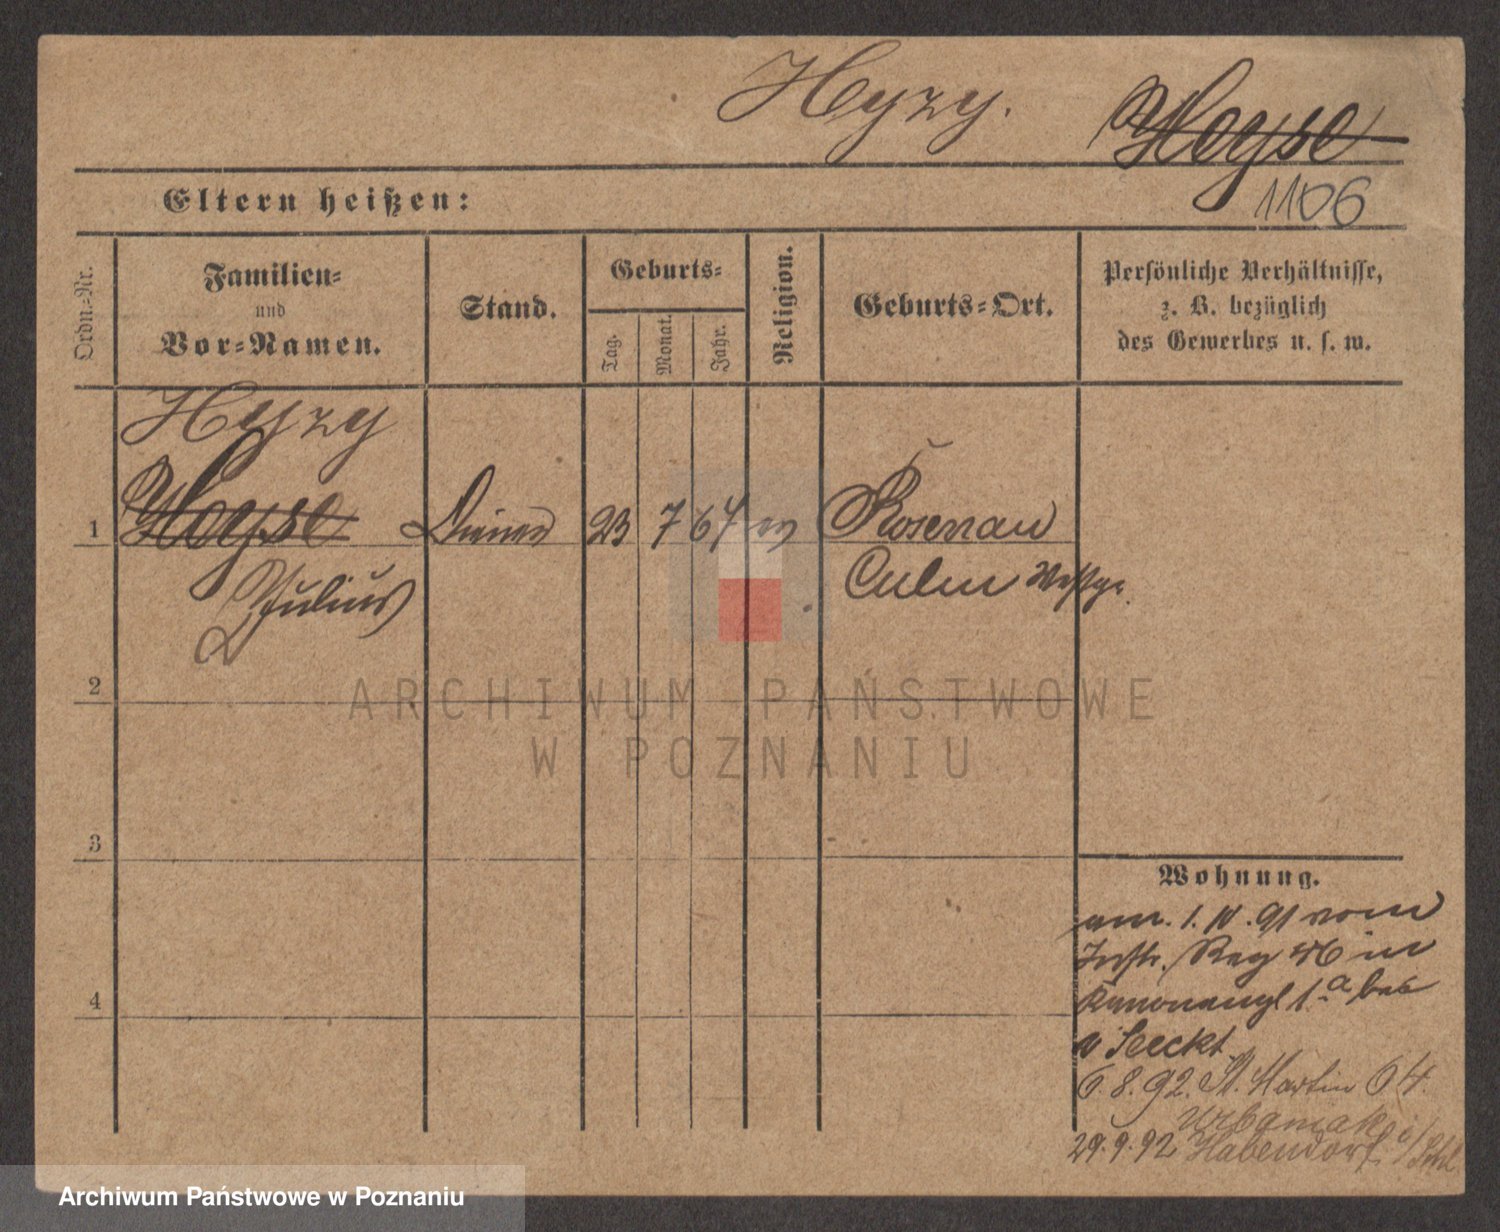 Hyzy. Heyse
Eltern heißen:
1106
Ordn.-Nr.
Familien-
und
Vor-Namen.
Stand.
Geburts-
Tag.
Monat.
Jahr.
Religion.
Geburts-Ort.
Persönliche Verhältnisse,
z. B. bezüglich
des Gewerbes u. s. w.
Hyzy
1 Heyse Diener 23 7 64 ev Rosenau
Julius Culm Westpr.
2
ARCHIWUM PAŃSTWOWE
W POZNANIU
3
Wohnung.
am. 1. IV. 91 vom
Inftr. Reg 46 in
4
Kanonenpl 1.a bei
v Seeckt
6.8.92. St. Martin 64.
Urbaniak
29.9.92 Habendorf i/Schl.
Archiwum Państwowe w Poznaniu